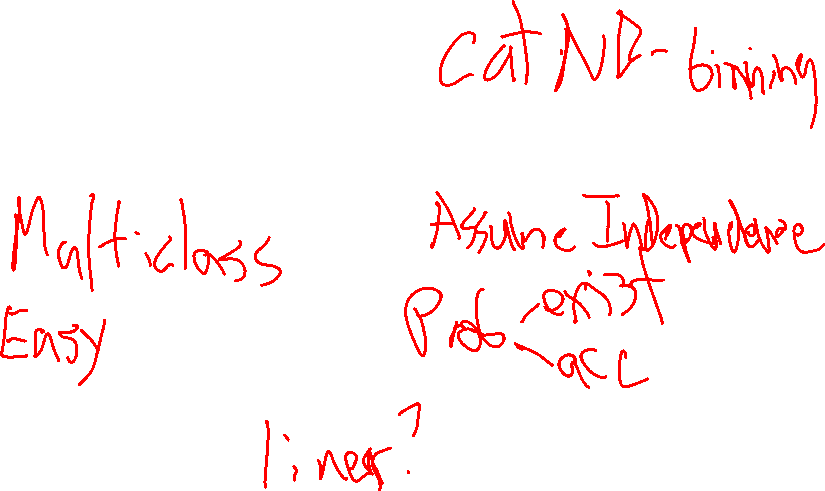 Cat NB - binning
Multiclass
Easy
Assume Independence
Prob - exist
- acc
linear?